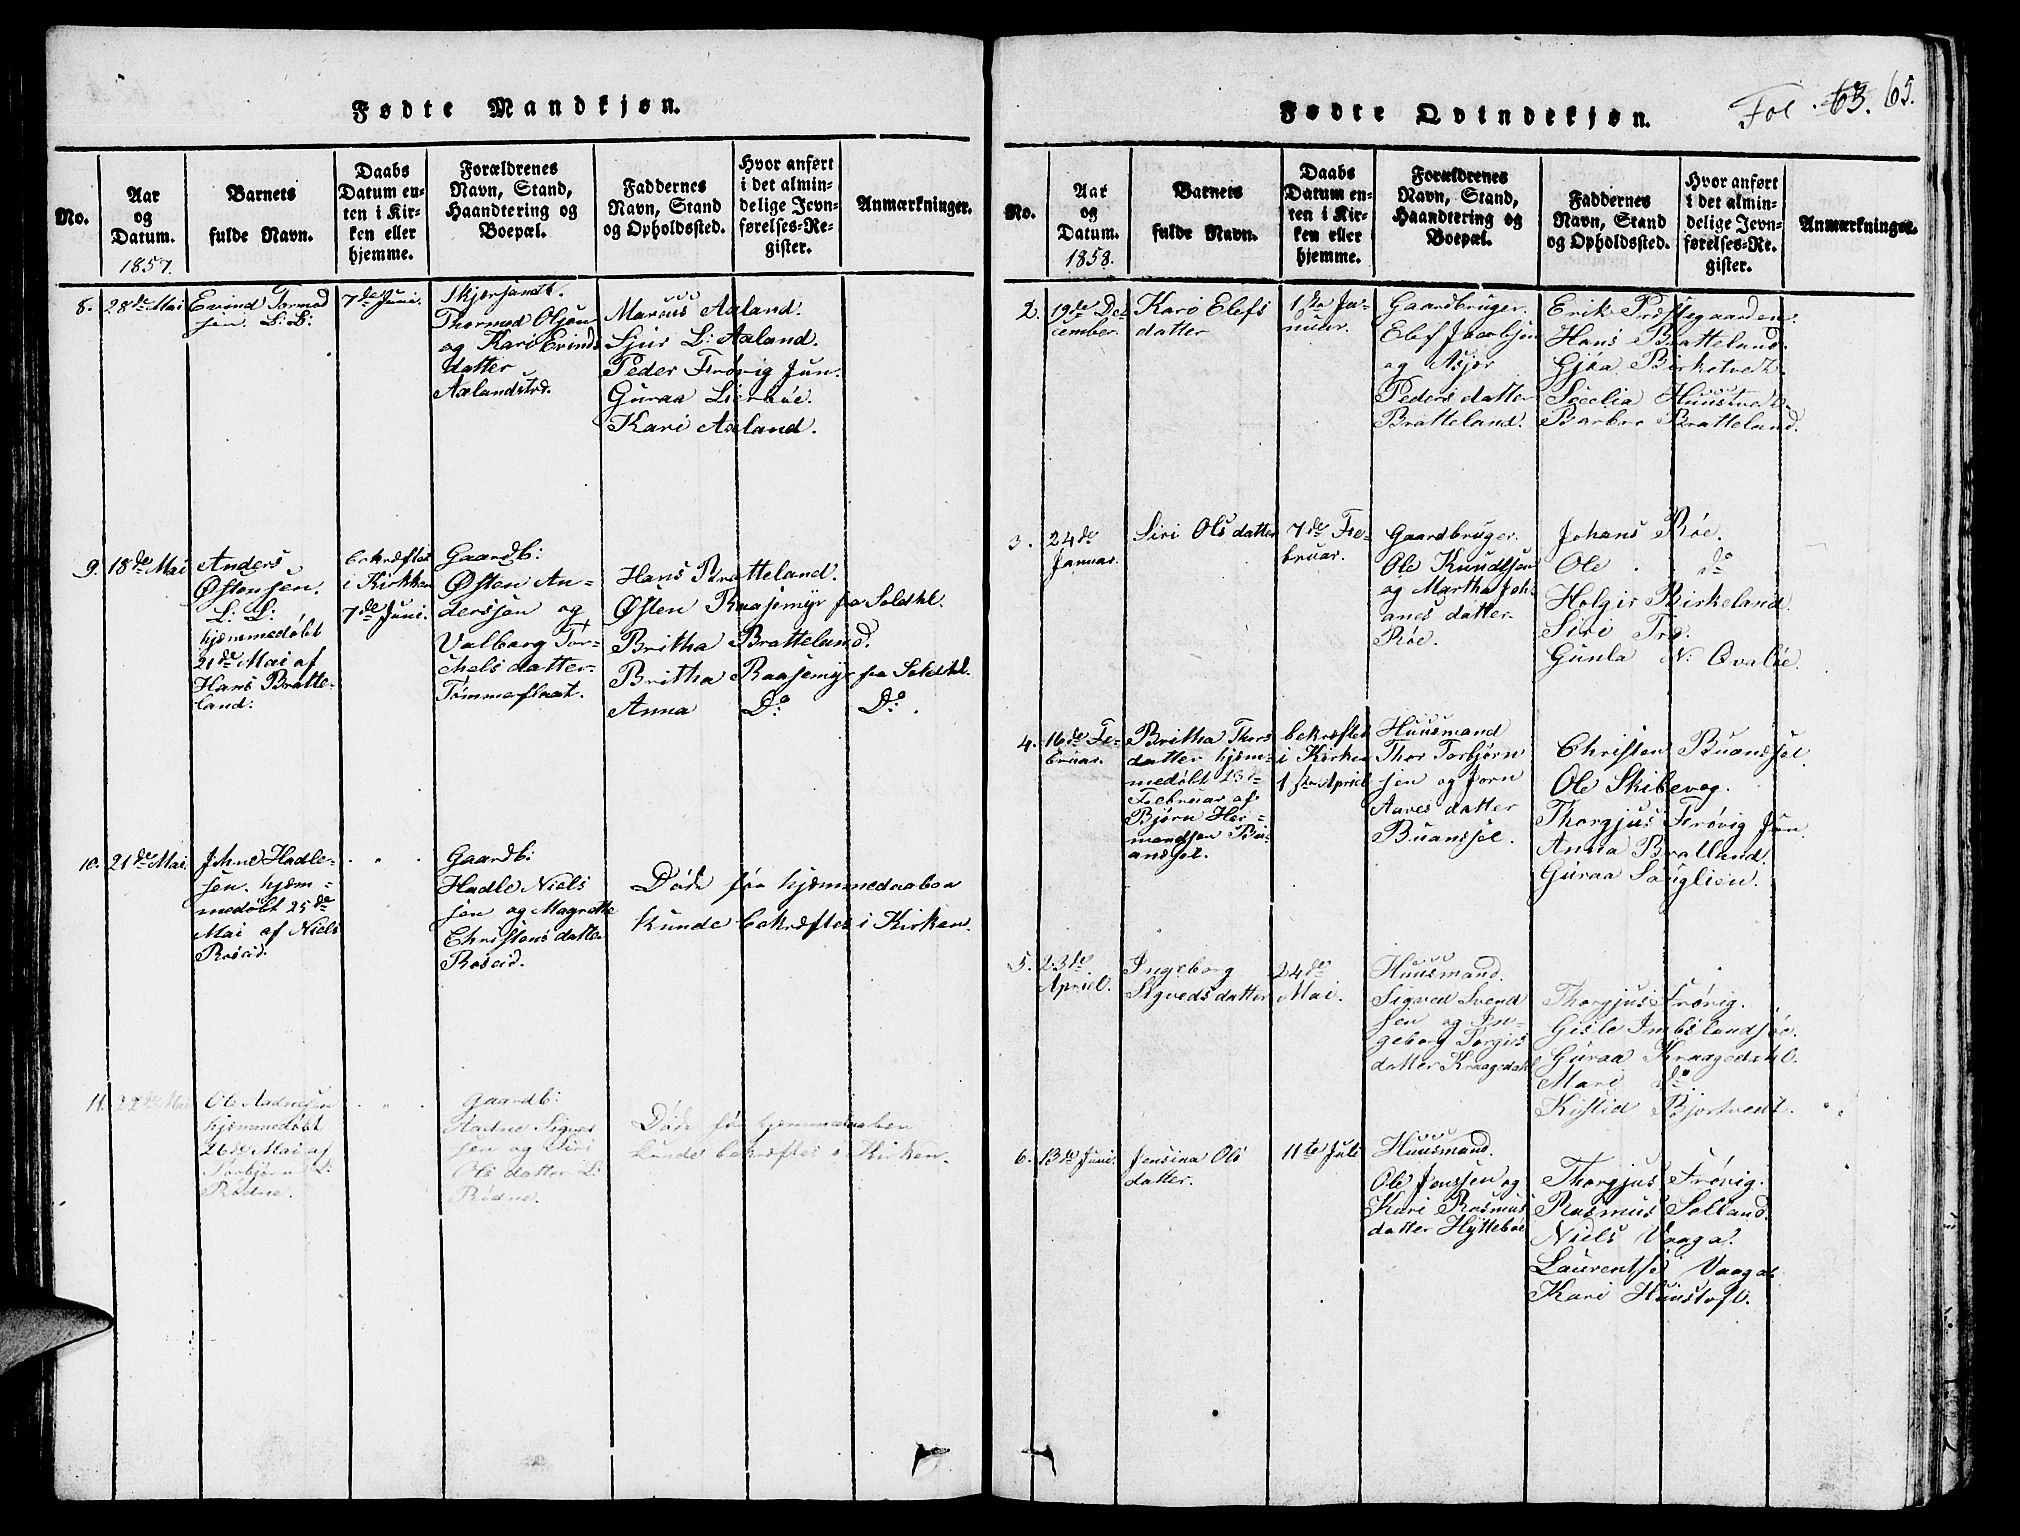 Fødte Mandkjøn.
No.
Aar
og
Datum.
1857.
Barnets
fulde Navn.
Daabs
Datum en-
ten i Kir-
ken eller
hjemme.
Forældrenes
Navn, Stand,
Haandtering og
Boepæl.
Faddernes
Navn, Stand
og Opholdssted.
Hvor anført
i det almin-
delige Jevn-
førelses-Re-
gister.
Anmærkninger.
8.
28de Mai
Evind Tormod
sen L: L:
7de Juni.
Thormod Olsen
og Kari Evinds
datter
Marcus Aaland.
Sjur L: Aaland.
Peder Frøvig Jun.
Guraa Lierbøe.
Kari Aaland.
9.
18de Mai
Anders
Østensen.
L: L:
hjemmedøbt
21de Mai af
Hans Bratte-
land.
bekræftet
i Kirken
7de Juni.
Gaardb:
Østen An-
derssen og
Valborg Tor-
chels datter
Tømmerflaat.
Hans Bratteland.
Østen Raasemyr fra Soldhl.
Britha Bratteland.
Britha Raasemyr fra
Anna Do: Do.
10.
21de Mai.
Johne Hadle-
sen. hjem-
medøbt 25de
Mai af Niels
Røseid.
Gaardb:
Hadle Niels
sen og Magrette
Christens datter
Røseid.
Døde før hjemmedaaben
kunde bekræftes i Kirken.
11.
22de Mai
Ole Aadnesen
hjemmedøbt
26de Mai af
Torbjørn L:
Rødne.
Gaardb:
Aadne Sigves
sen og Siri
Ols datter L:
Rødne.
Døde før hjemmedaaben
kunde bekræftes i Kirken.
Fødte Qvindekjøn.
Fol. 63. 65.
No.
Aar
og
Datum.
1858.
Barnets
fulde Navn.
Daabs
Datum en-
ten i Kir-
ken eller
hjemme.
Forældrenes
Navn, Stand,
Haandtering og
Boepæl.
Faddernes
Navn, Stand
og Opholdssted.
Hvor anført
i det almin-
delige Jevn-
førelses-Re-
gister.
Anmærkninger.
2.
19de De
cember.
Kari Elefs
datter
1ste Ja-
nuar.
Gaardbruger.
Elef Jacobsen
og Asjør
Peders datter
Bratteland.
Erik Præstegaarden.
Hans Bratteland.
Gjøa Birketvet.
Secelia Huustvedt.
Barbro Bratteland.
3.
24de
Januar.
Siri Ols datter
7de Fe-
bruar.
Gaardbruger.
Ole Knudssen
og Martha Joh-
anes datter
Røe.
Johans Røe.
Ole do
Holgir Birkeland.
Siri Trø.
Gunla N: Qvaløe.
4.
16de Fe-
bruar.
Britha Thors
datter hjem-
medøbt 23-
Februar af
Bjørn Her-
mandsen Bu-
andsøl.
bekræftet
i Kirken
1ste April
Huusmand
Thor Torbjørn
sen og Jorn
Aanes datter
Buandsøl.
Christen Buandsøl.
Ole Skibevog.
Thorgjus Frøvig Jun.
Anna Bralland.
Guraa Sauglien.
5.
23de
Apriel.
Ingeborg
Sigveds datter
24de
Mai.
Huusmand.
Sigved Svend
sen og In-
geborg Torgius
datter Kraagedahl
Thorgjus Frøvig.
Gisle Imbslandsøe.
Guraa Kraagedahl.
Mari do
Kistid Bjortvent.
6.
13de Juni.
Jensina Ols
datter.
11te Juli
Huusmand.
Ole Jonssen og
Kari Rasmus
datter Hyttebøe
Thorgjus Frøvig.
Rasmus Selland.
Niels Vaaga.
Laurentse Vaaga.
Kari Huustoft.